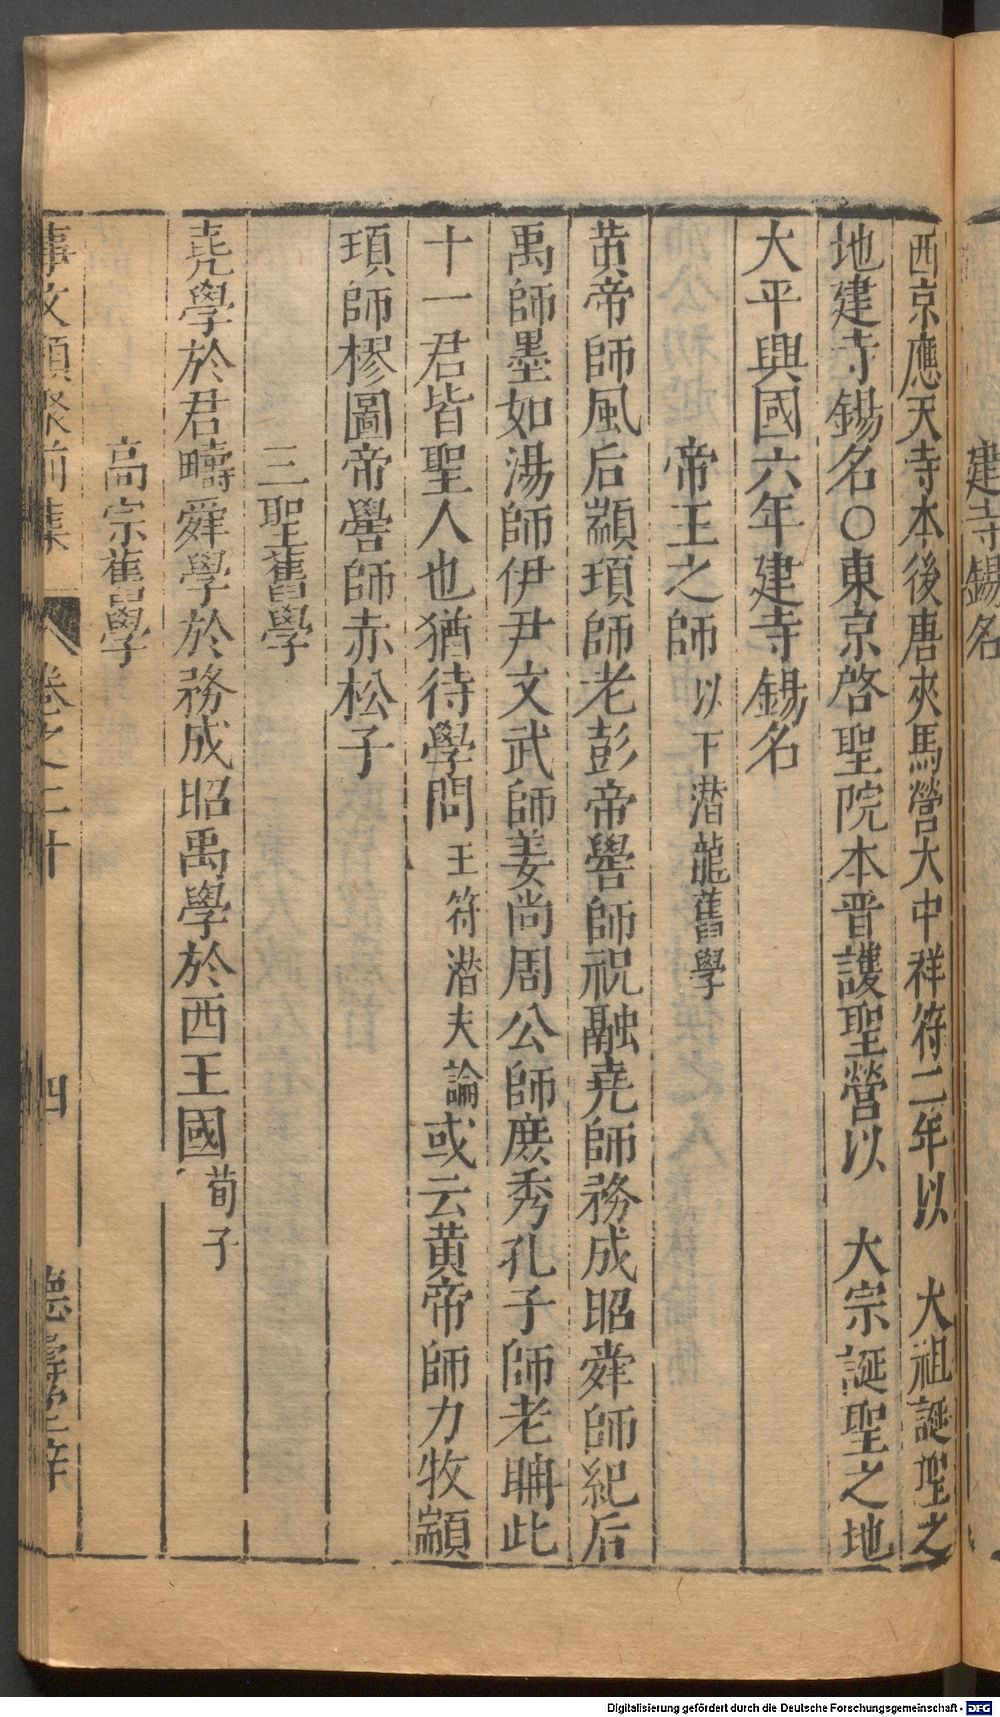 建寺錫名
西京應天寺本後唐夾馬營大中祥符二年以　大祖誕聖之
地建寺錫名○東京啓聖院本晋護聖營以　大宗誕聖之地
大平興國六年建寺錫名
帝王之師以下潛龍舊學
黄帝師風后顓頊師老彭帝嚳師祝融堯師務成昭舜師紀后
禹師墨如湯師伊尹文武師姜尚周公師庶秀孔子師老聃此
十一君皆聖人也猶待學問王符潛夫論或云黄帝師力牧顓
頊師樛圖帝嚳師赤松子
三聖舊學
堯學於君疇舜學於務成昭禹學於西王國荀子
高宗舊學
事文類聚前集　卷之二十　四　德壽堂梓
Digitalisierung gefördert durch die Deutsche Forschungsgemeinschaft - DFG